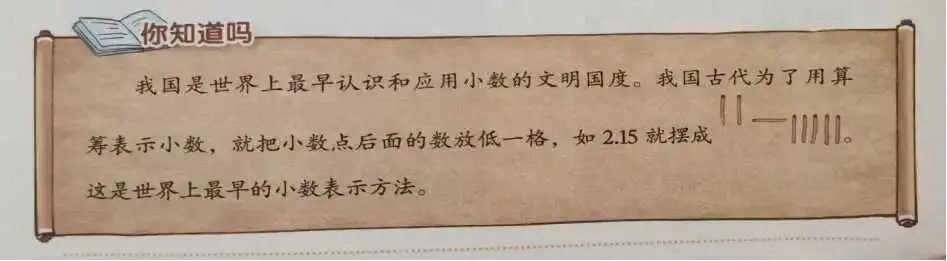 你知道吗
我国是世界上最早认识和应用小数的文明国度。我国古代为了用算
筹表示小数，就把小数点后面的数放低一格，如 2.15 就摆成 || — |||||。
这是世界上最早的小数表示方法。